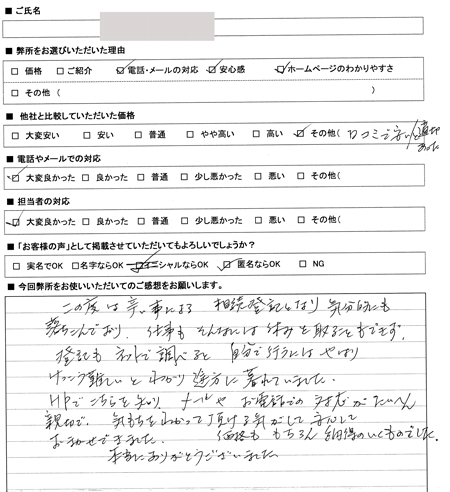 ■ ご氏名
■ 弊所をお選びいただいた理由
□ 価格 □ご紹介 ☑電話・メールの対応 ☑安心感 ☑ホームページのわかりやすさ
□ その他 ( )
■ 他社と比較していただいた価格
□ 大変安い □ 安い □ 普通 □ やや高い □ 高い ☑ その他( 口コミで安いと
あった
■ 電話やメールでの対応
☑ 大変良かった □ 良かった □ 普通 □ 少し悪かった □ 悪い □ その他(
■ 担当者の対応
☑ 大変良かった □ 良かった □ 普通 □ 少し悪かった □ 悪い □ その他(
■ 「お客様の声」として掲載させていただいてもよろしいでしょうか?
□ 実名でOK □名字ならOK ☑イニシャルならOK ☑ 匿名ならOK □ NG
■ 今回弊所をお使いいただいてのご感想をお願いします。
この度は辛い事による 相続登記となり 気分的にも
落ちこんでおり、仕事も そんなには 休みを取ることもできず、
登記も ネットで調べると 自分で行うには やはり
けっこう難しいと わかり 途方に暮れていました。
HPでこちらを知り メールや お電話での 対応が たいへん
親切で、気もちをわかって頂ける気がして 安心して
おまかせできました。 価格も もちろん 納得のいくものでした。
本当にありがとうございました